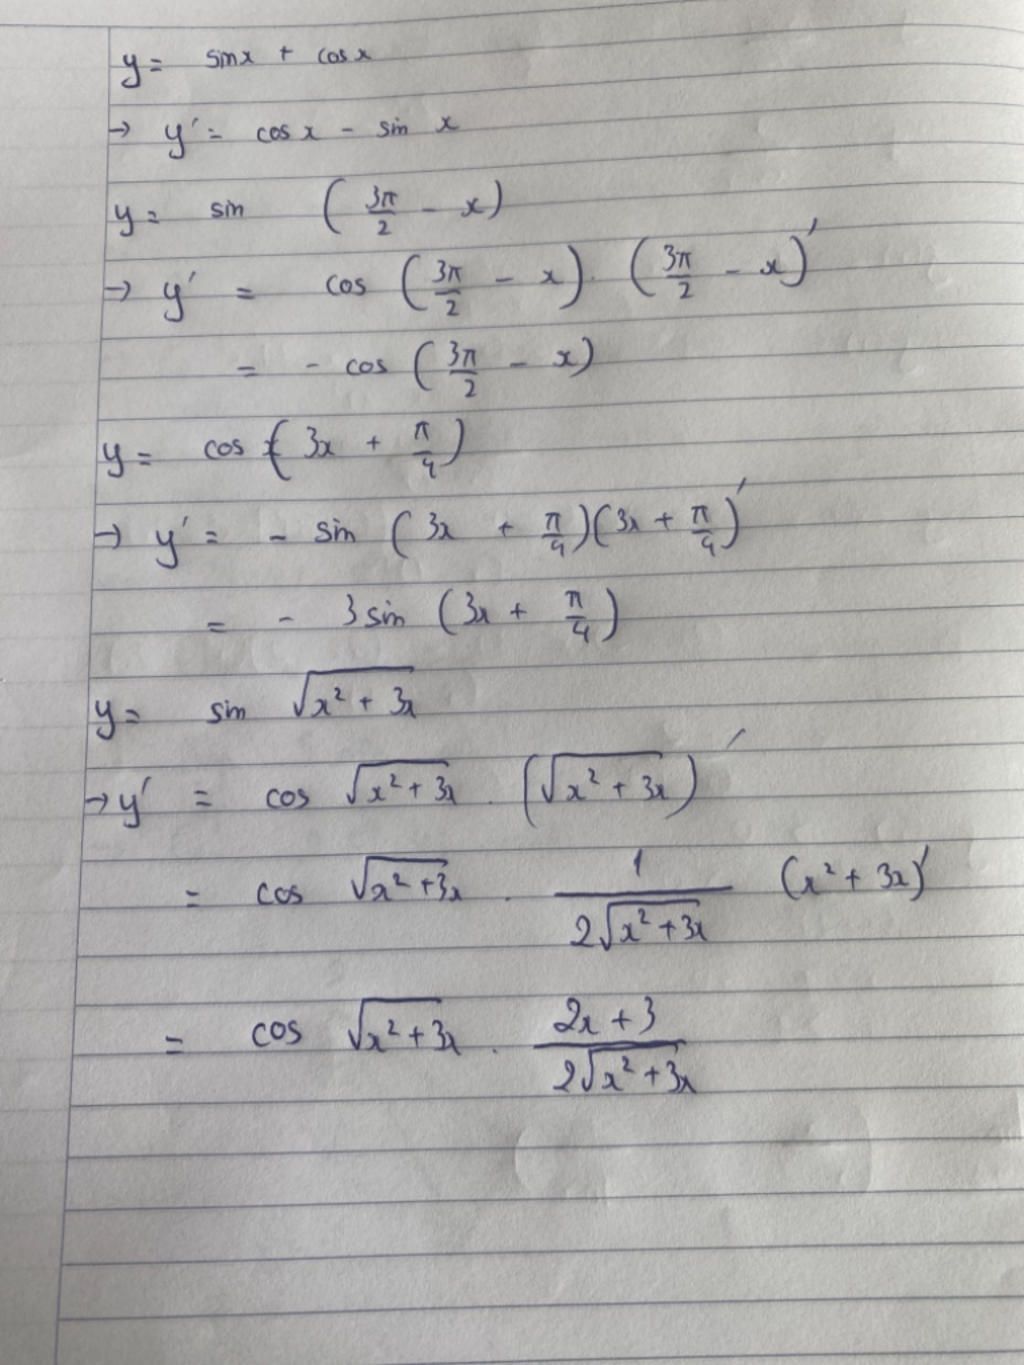 y = sinx + cosx
→ y' = cosx - sin x
y = sin (3π/2 - x)
→ y' = cos (3π/2 - x) · (3π/2 - x)'
= - cos (3π/2 - x)
y = cos (3x + π/4)
→ y' = - sin (3x + π/4)(3x + π/4)'
= - 3sin (3x + π/4)
y = sin √(x² + 3x)
→ y' = cos √(x² + 3x) · (√(x² + 3x))'
= cos √(x² + 3x) · 1/(2√(x² + 3x)) (x² + 3x)'
= cos √(x² + 3x) · (2x + 3)/(2√(x² + 3x))